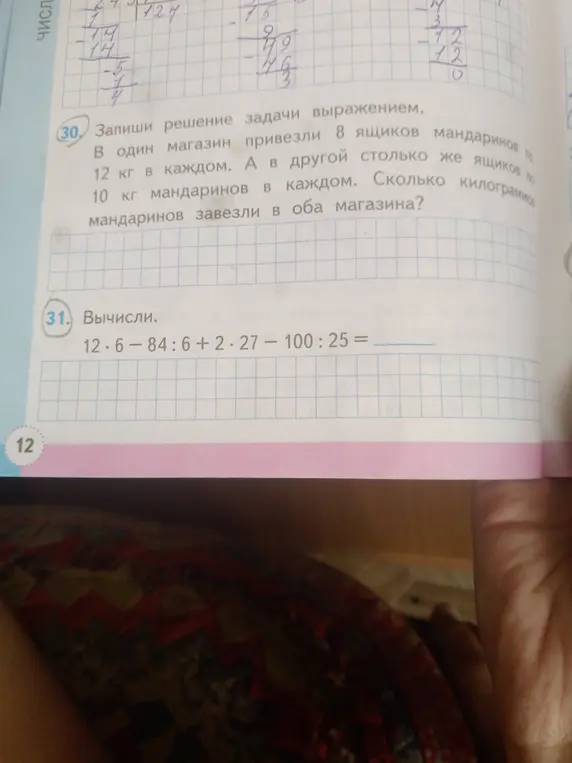 ЧИСЛ
127
- 14
14
- 5
4
- 49
46
3
- 12
12
0
30. Запиши решение задачи выражением.
В один магазин привезли 8 ящиков мандаринов по
12 кг в каждом. А в другой столько же ящиков по
10 кг мандаринов в каждом. Сколько килограммов
мандаринов завезли в оба магазина?
31. Вычисли.
12 · 6 − 84 : 6 + 2 · 27 − 100 : 25 = ______
12